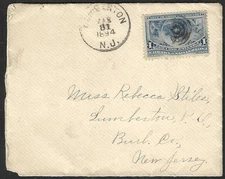 FEB
01
1894
N.J.
1 1
Miss Rebecca Stiles,
Lumberton, N. J.,
Burl. Co,
New Jersey.